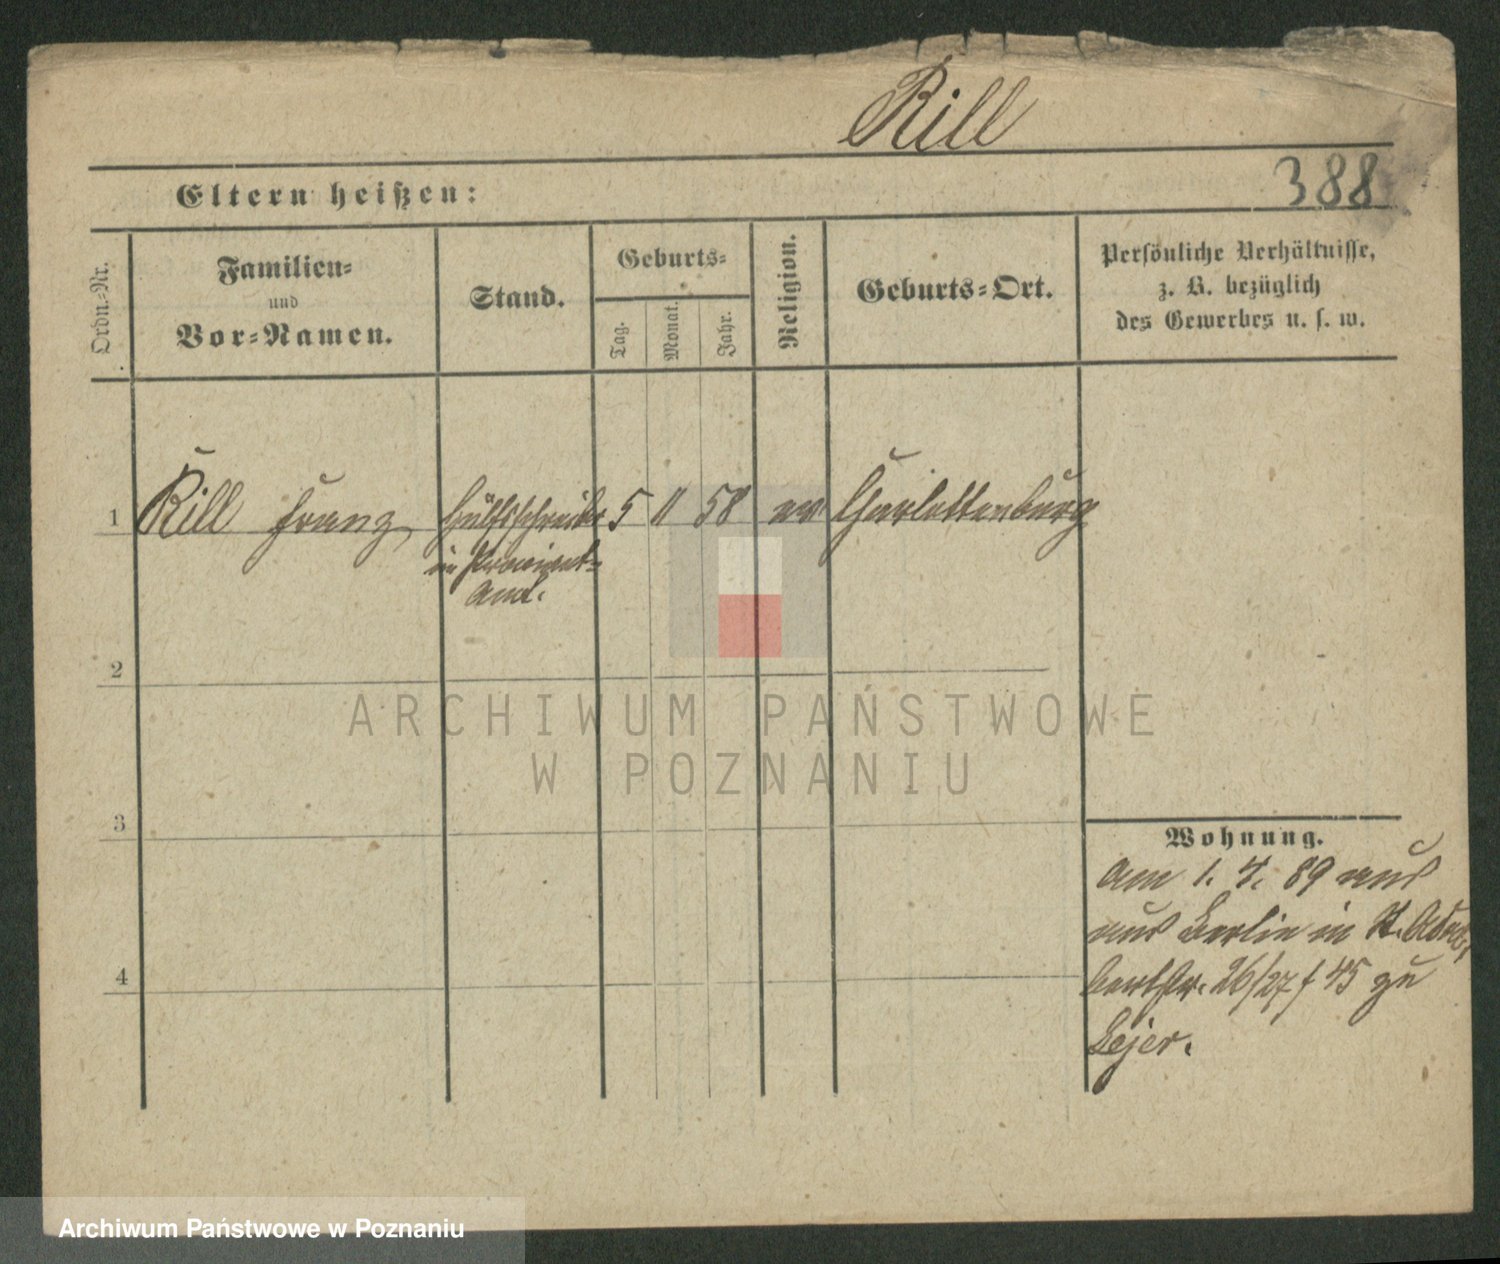 Rill
388
Eltern heißen:
Ordn.-Nr.
Familien-
und
Vor-Namen.
Stand.
Geburts-
Tag.
Monat.
Jahr.
Religion.
Geburts-Ort.
Persönliche Verhältnisse,
z. B. bezüglich
des Gewerbes u. s. w.
1 Rill Franz Hülfsschreiber 5 11 58 ev Charlottenburg
in Proviant-
Amt.
2
3
4
Wohnung.
Am 1. 4. 89
aus Berlin in St. Adal-
bertstr. 26/27 f 45 zu
ARCHIWUM PAŃSTWOWE
W POZNANIU
Archiwum Państwowe w Poznaniu